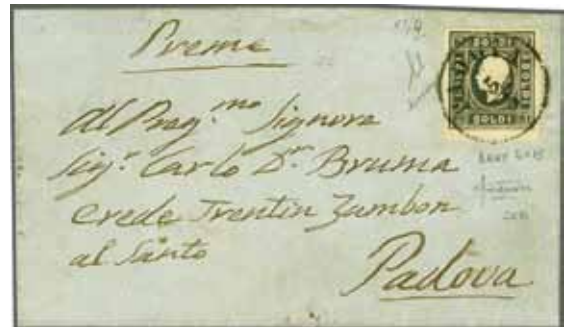 Preme
Al Preg.mo Signore
Sig.r Carlo D.r Bruma
erede Trentin Zambon
al Santo
Padova
SOLDI
SOLDI